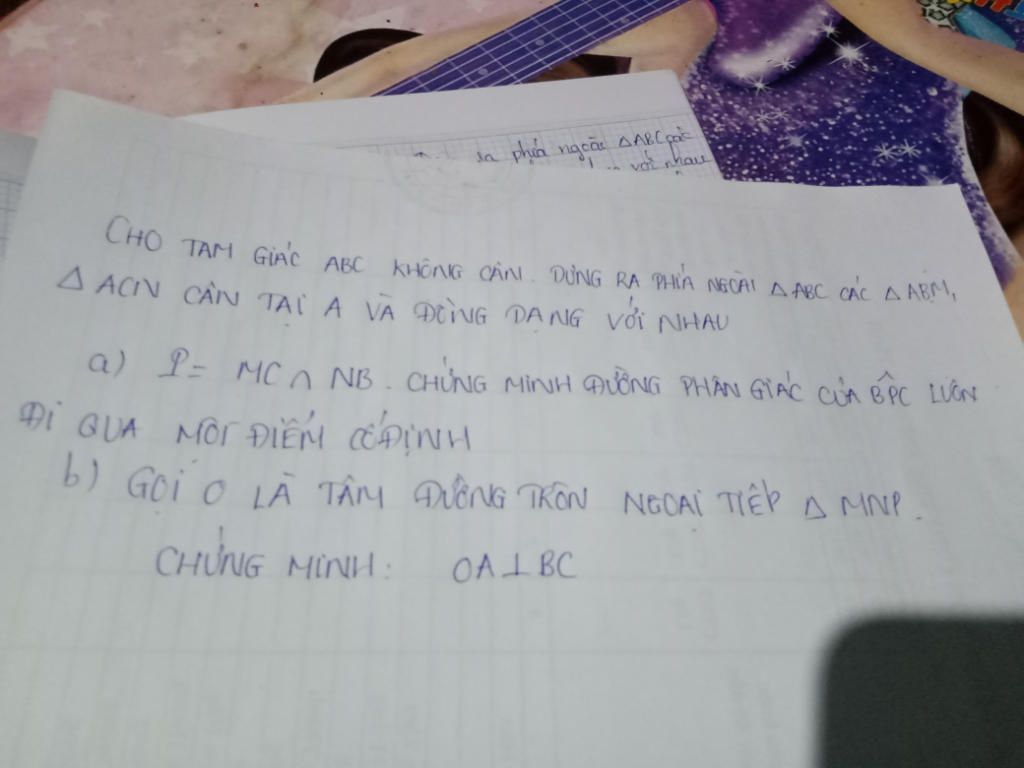 ra phía ngoài △ABC các
với nhau
CHO TAM GIÁC ABC KHÔNG CÂN. DỰNG RA PHÍA NGOÀI △ABC CÁC △ABM,
△ACN CÂN TẠI A VÀ ĐỒNG DẠNG VỚI NHAU
a) P = MC ∩ NB. CHỨNG MINH ĐƯỜNG PHÂN GIÁC CỦA BPC LUÔN
ĐI QUA MỘT ĐIỂM CỐ ĐỊNH
b) GỌI O LÀ TÂM ĐƯỜNG TRÒN NGOẠI TIẾP △MNP.
CHỨNG MINH: OA⊥BC